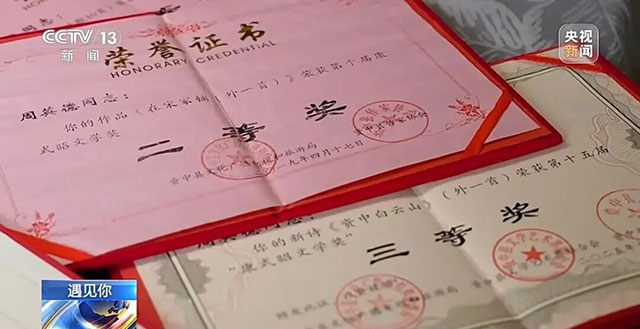 CCTV 13
新闻
央视
新闻
荣誉证书
HONORARY CREDENTIAL
周英德同志:
你的作品《在宋家铺(外一首)》荣获第十届康
式昭文学奖
二等奖
九年四月十七日
你的新诗《资中白云山》(外一首)荣获第十五届
"康式昭文学奖"
三等奖
特发此证
遇见你